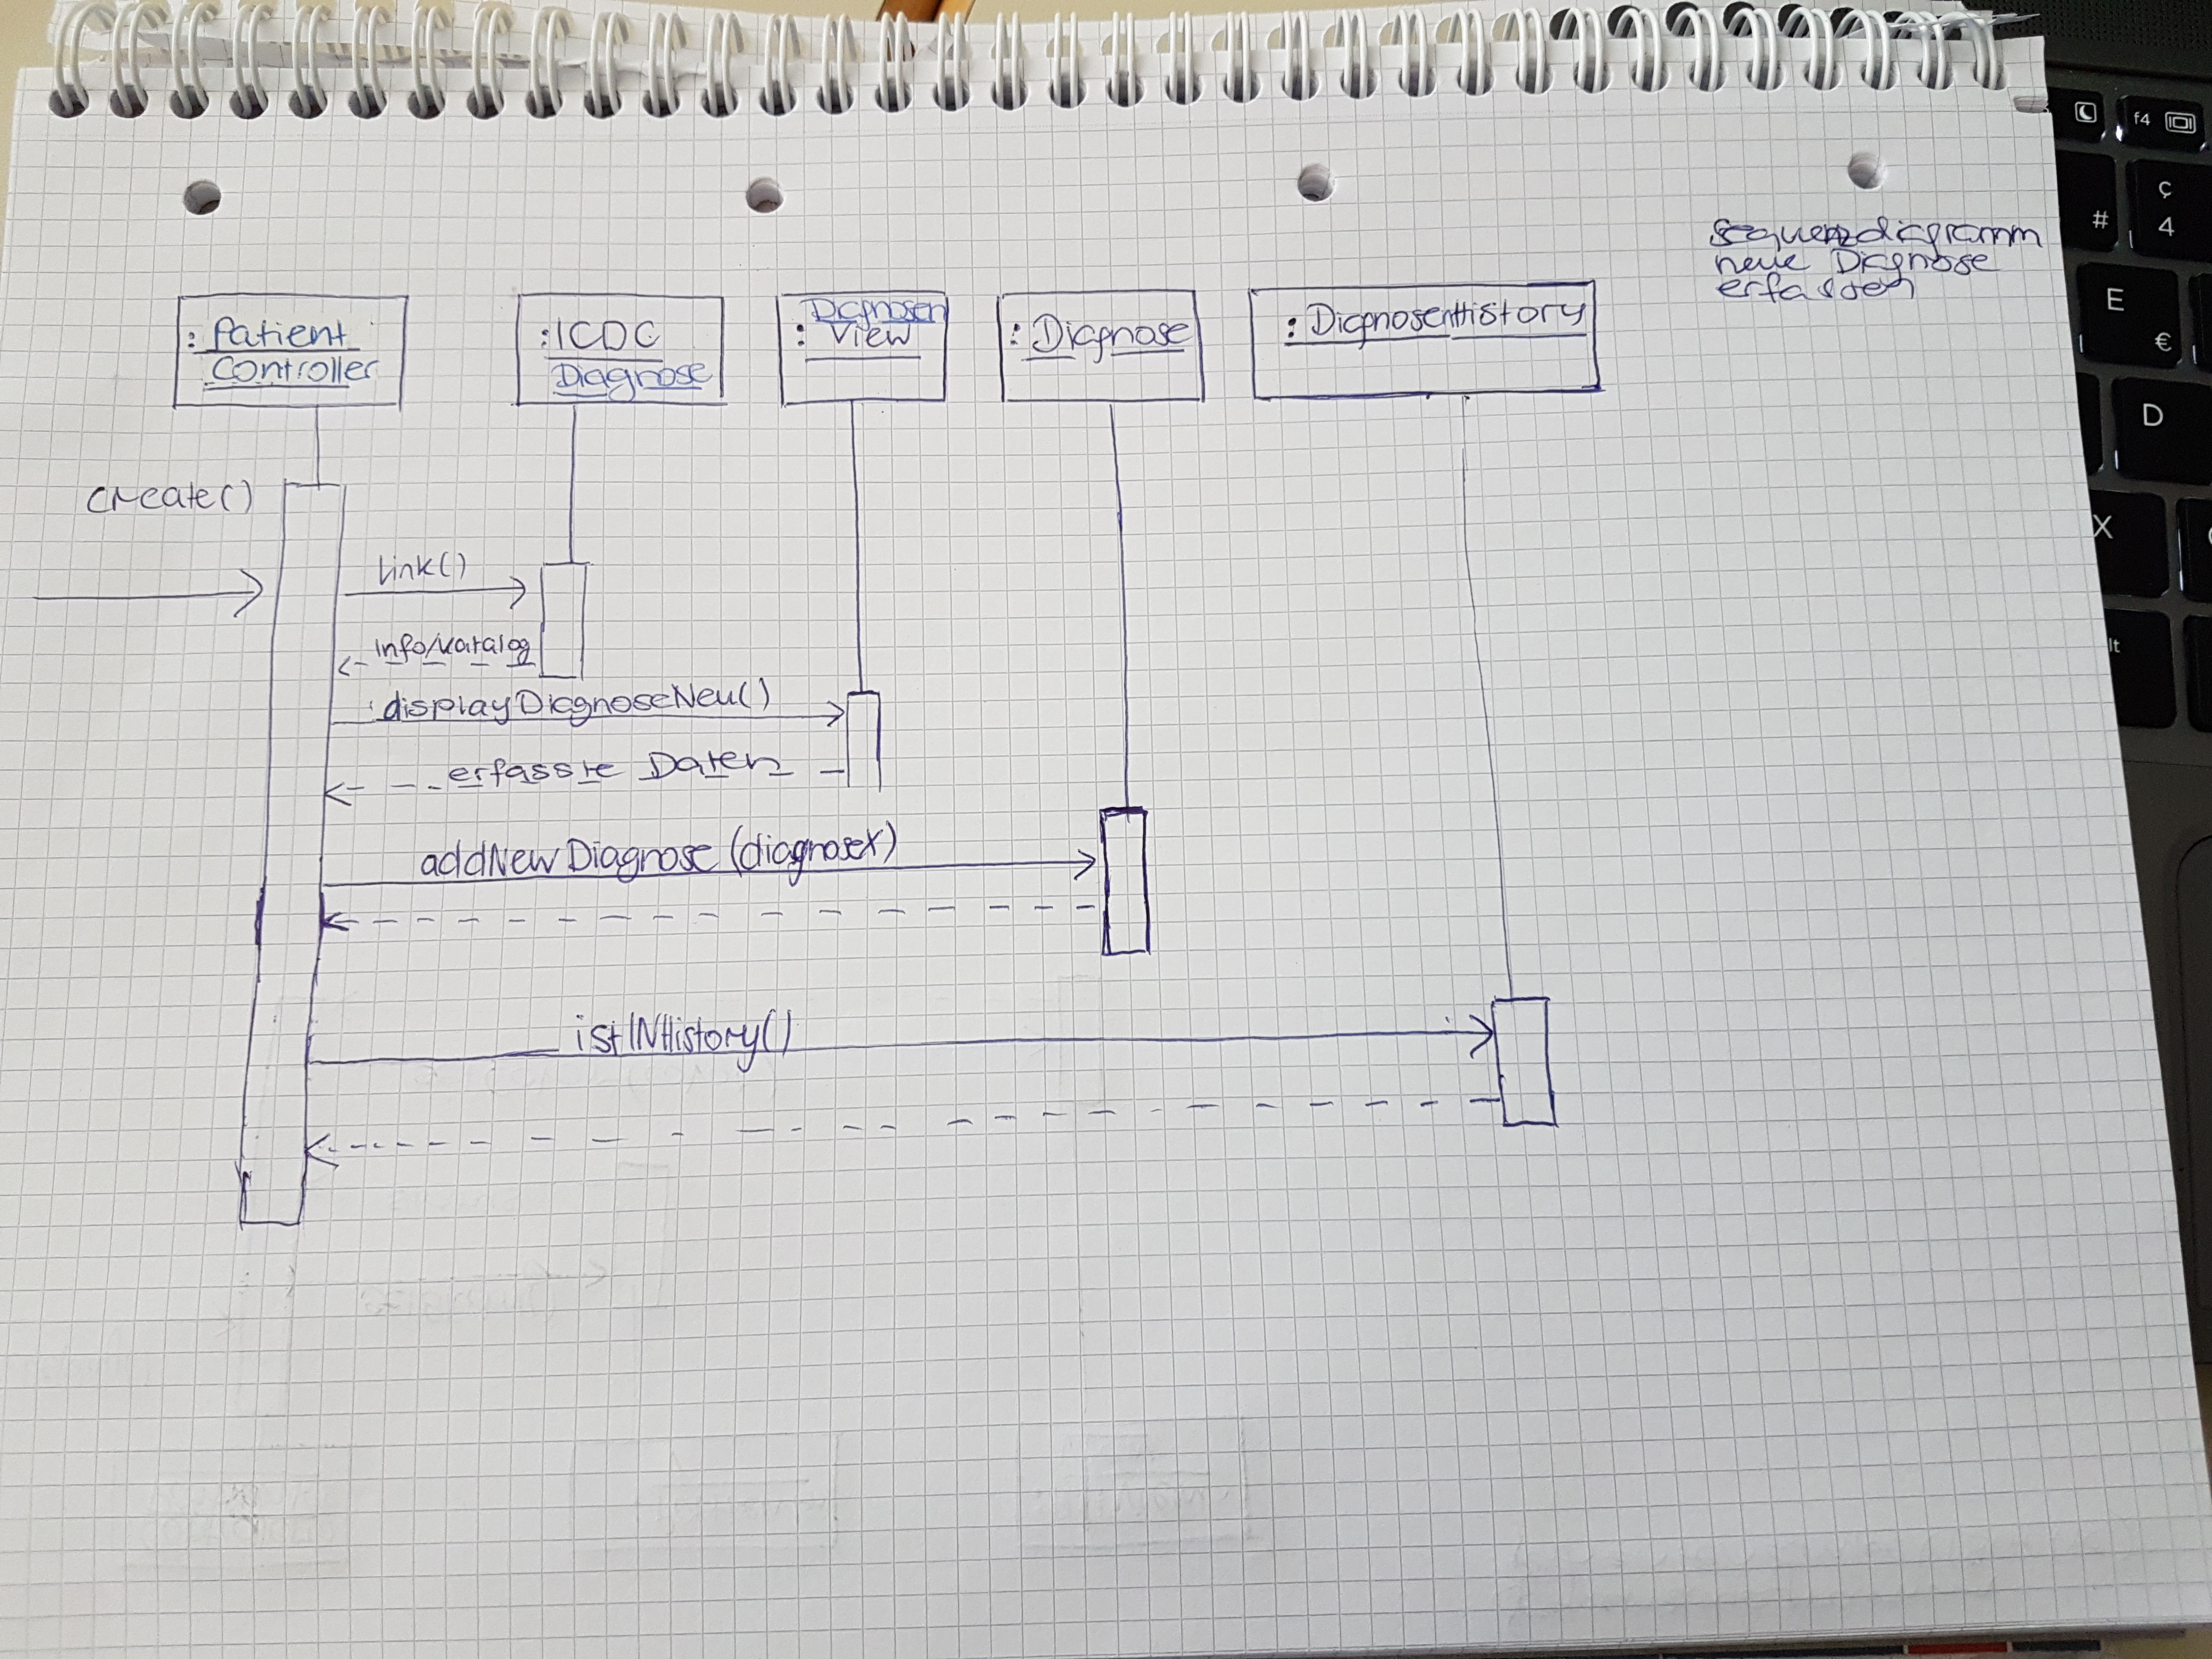 Sequenzdiagramm
neue Diagnose
erfassen
: Patient
Controller
:ICDC
Diagnose
Diagnosen
: View
: Diagnose
: DiagnosenHistory
create()
link()
Info/Katalog
displayDiagnoseNeu()
erfasste Daten
addNewDiagnose (diagnoseX)
istINHistory()
f4
#
ç
4
E
€
D
X
lt